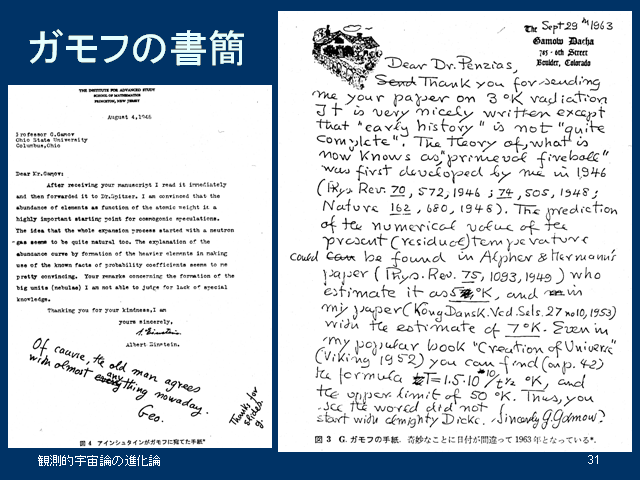 ガモフの書簡
THE INSTITUTE FOR ADVANCED STUDY
SCHOOL OF MATHEMATICS
PRINCETON, NEW JERSEY
August 4,1946
Professor G.Gamov
Ohio State University
Columbus,Ohio
Dear Mr.Gamov:
After receiving your manuscript I read it immediately
and then forwarded it to Dr.Spitzer. I am convinced that the
abundance of elements as function of the atomic weight is a
highly important starting point for cosmogonic speculations.
The idea that the whole expansion process started with a neutron
gas seems to be quite natural too. The explanation of the
abundance curve by formation of the heavier elements in making
use of the known facts of probability coefficients seems to me
pretty convincing. Your remarks concerning the formation of the
big units (nebulae) I am not able to judge for lack of special
knowledge.
Thanking you for your kindness,I am
yours sincerely,
A. Einstein.
Albert Einstein.
Of course, the old man agrees
with almost anything nowaday.
Geo.
Thanks for
slides
g.
図 4 アインシュタインがガモフに宛てた手紙*
Sept 29th 1963
The
Gamow Dacha
785 - 6th Street
Boulder, Colorado
Dear Dr. Penzias,
Send Thank you for sending
me your paper on 3 °K radiation
It is very nicely written except
that "early history" is not "quite
complete". The theory of, what is
now knows as, "primeval fireball"
was first developed by me in 1946
(Phys Rev. 70, 572, 1946; 74, 505, 1948;
Nature 162, 680, 1948). The prediction
of the numerical value of the
present (residue) temperature
could be found in Alpher & Hermann's
paper (Phys. Rev. 75, 1093, 1949) who
estimate it as 5 °K, and in
my paper (Kong Dansk. Ved. Sels. 27 no 10, 1953)
with the estimate of 7 °K. Even in
my popular book "Creation of Universe"
(Viking 1952) you can find (on p. 42)
the formula T=1.5·10^10/t^½ °K, and
the upper limit of 50 °K. Thus, you
see the world did not
start with almighty Dicke. Sincerely G. Gamow
図 3 G. ガモフの手紙. 奇妙なことに日付が間違って 1963 年となっている*.
観測的宇宙論の進化論
31